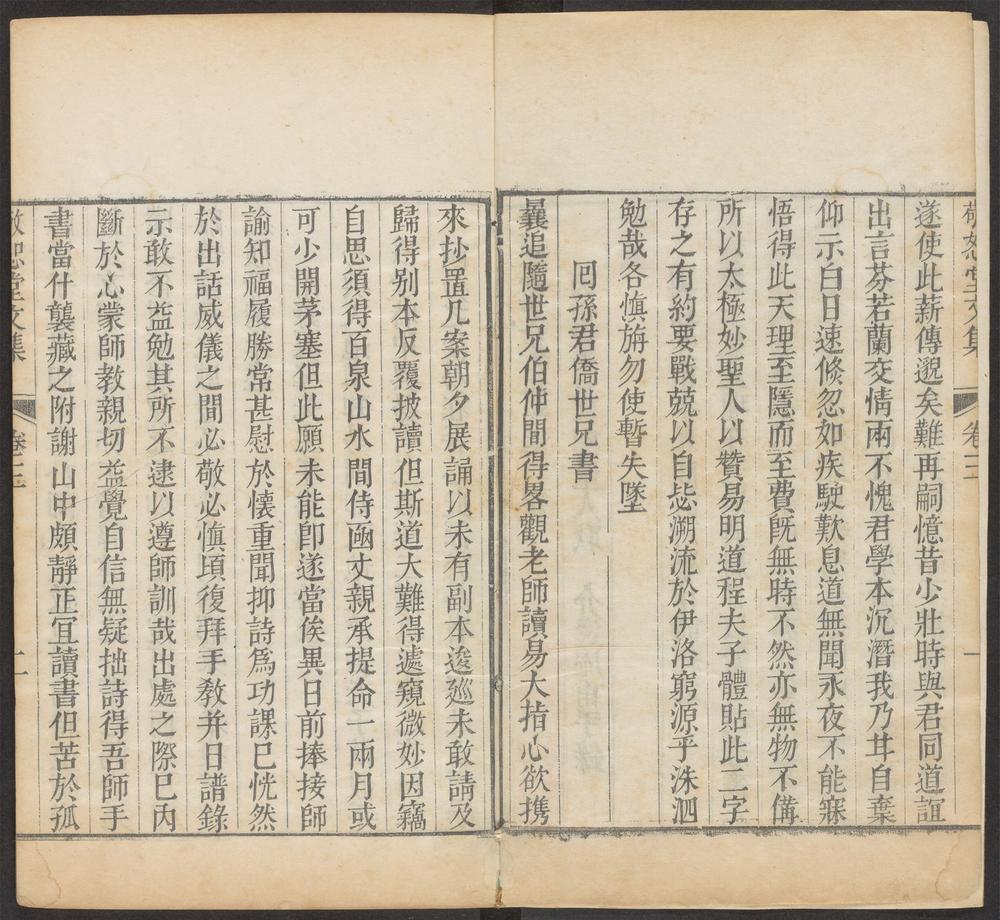 敬恕堂文集
卷三
一
遂使此薪傳邈矣難再嗣憶昔少壯時與君同道誼
出言芬若蘭交情兩不愧君學本沉潛我乃甘自棄
仰示白日速倏忽如疾駛歎息道無聞永夜不能寐
悟得此天理至隱而至費旣無時不然亦無物不備
所以太極妙聖人以贊易明道程夫子體貼此二字
存之有約要戰兢以自毖溯流於伊洛窮源乎洙泗
勉哉各慎旃勿使暫失墜
囘孫君僑世兄書
曩追隨世兄伯仲間得畧觀老師讀易大指心欲携
來抄置几案朝夕展誦以未有副本逡巡未敢請及
歸得别本反覆披讀但斯道大難得遽窺微妙因竊
自思須得百泉山水間侍凾丈親承提命一兩月或
可少開茅塞但此願未能卽遂當俟異日前捧接師
諭知福履勝常甚慰於懷重聞抑詩爲功課已恍然
於出話威儀之間必敬必愼頃復拜手敎并日譜錄
示敢不益勉其所不逮以遵師訓哉出處之際已內
斷於心蒙師教親切益覺自信無疑拙詩得吾師手
書當什襲藏之附謝山中頗靜正冝讀書但苦於孤
敬恕堂文集
卷三
二